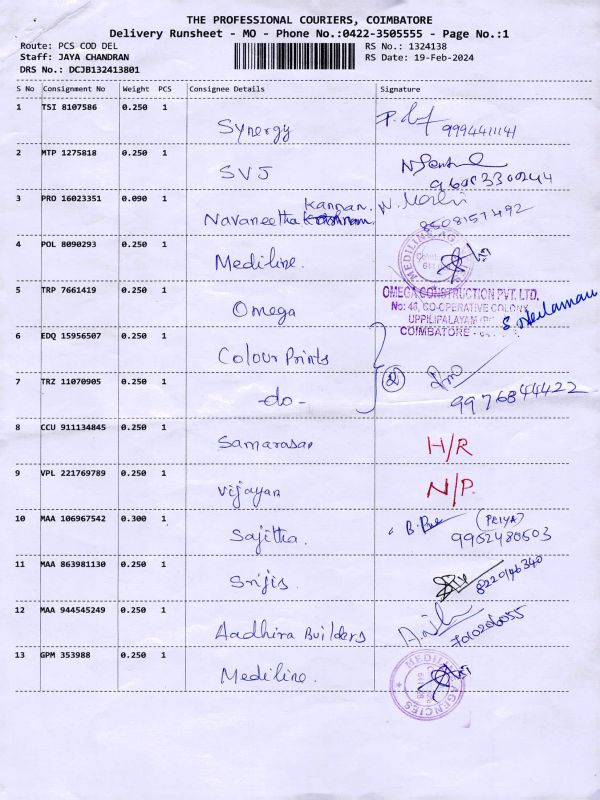 THE PROFESSIONAL COURIERS, COIMBATORE
Delivery Runsheet - MO - Phone No.:0422-3505555 - Page No.:1
Route: PCS COD DEL RS No.: 1324138
Staff: JAYA CHANDRAN RS Date: 19-Feb-2024
DRS No.: DCJB132413801
S No Consignment No Weight PCS Consignee Details Signature
1 TSI 8107586 0.250 1 Synergy 9994411141
2 MTP 1275818 0.250 1 SVJ
3 PRO 16023351 0.090 1 Navaneetha Kannan. 8508157492
4 POL 8090293 0.250 1 Mediline.
5 TRP 7661419 0.250 1 Omega
OMEGA CONSTRUCTION PVT. LTD.
No: 46, CO-OPERATIVE COLONY
UPPILIPALAYAM
COIMBATORE -
6 EDQ 15956507 0.250 1 Colour Prints
7 TRZ 11070905 0.250 1 -do- 2 9976844422
8 CCU 911134845 0.250 1 Samarasan H/R
9 VPL 221769789 0.250 1 Vijayan N/P.
10 MAA 106967542 0.300 1 Sajitha. (PRIYA) 9952480503
11 MAA 863981130 0.250 1 Srijis. 8220146340
12 MAA 944545249 0.250 1 Aadhira Builders
13 GPM 353988 0.250 1 Mediline.
MEDILINE AGENCIES